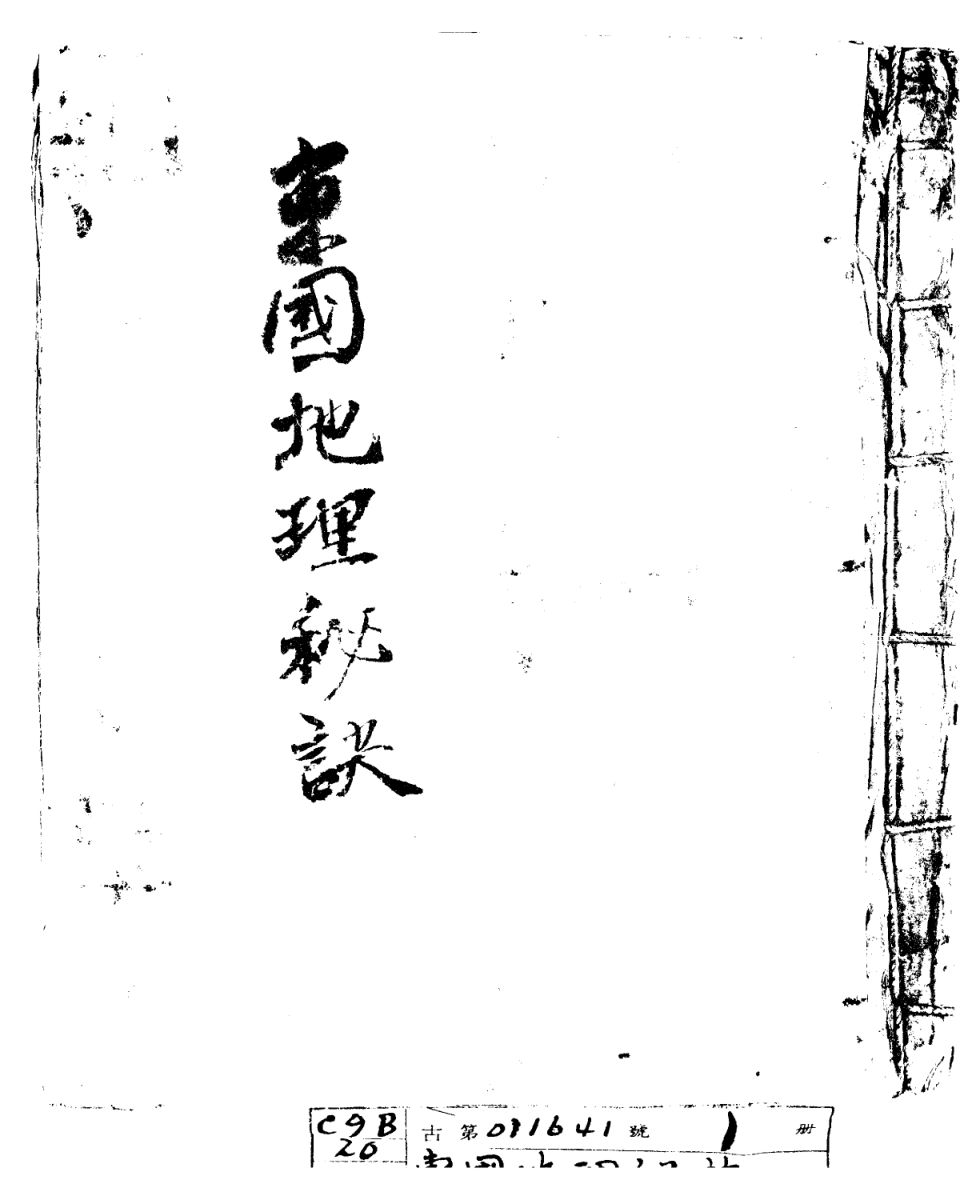 東國地理秘訣
C9B
20
古 第 091641 號 1 册